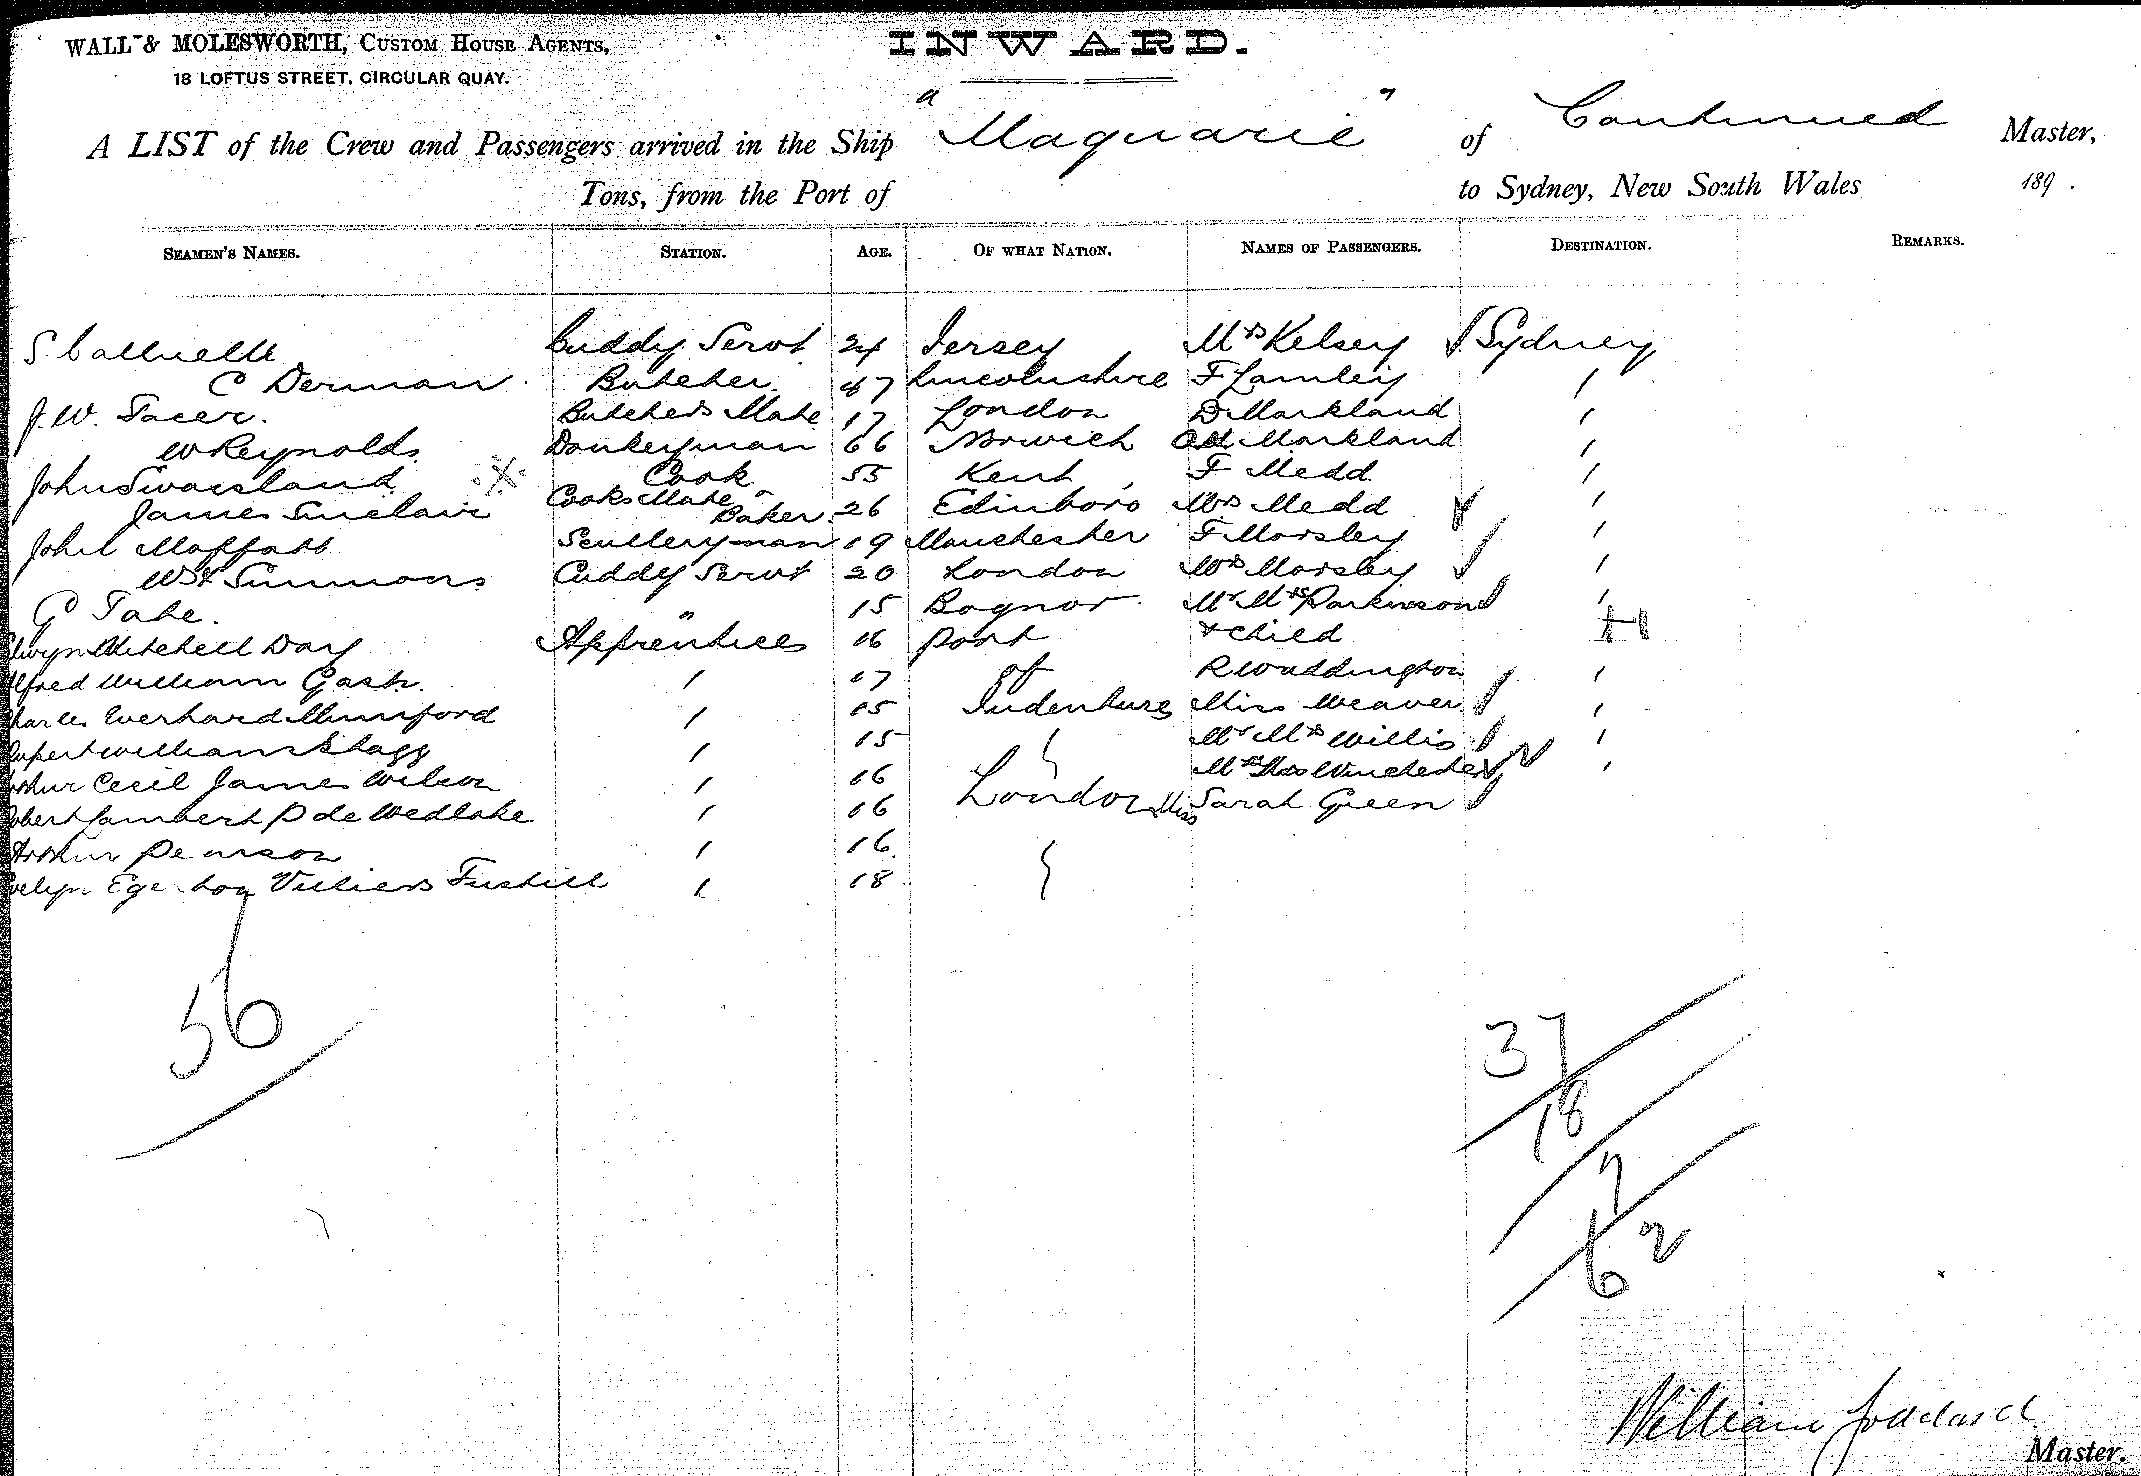 WALL & MOLESWORTH, CUSTOM HOUSE AGENTS,
18 LOFTUS STREET, CIRCULAR QUAY.
INWARD.
A LIST of the Crew and Passengers arrived in the Ship "Maquarie" of Continued Master,
Tons, from the Port of to Sydney, New South Wales 189 .
SEAMEN'S NAMES. STATION. AGE. OF WHAT NATION. NAMES OF PASSENGERS. DESTINATION. REMARKS.
S. Cuddy Servt 24 Jersey Mrs Kelsey Sydney
C Derman Butcher 47 Lincolnshire F Lamley
J. W. Butchers Mate 17 London D Markland
W Reynolds Donkeyman 66 Norwich Markland
John Swaesland Cook 55 Kent F Medd
James Sinclair Cooks Mate Baker 26 Edinboro Mrs Medd
John Moffatt Scullery man 19 Manchester F Morsley
Wm Simmons Cuddy Servt 20 London Mrs Morsley
G Tate. " 15 Bognor Mr Mrs Parkinson
Mitchell Day Apprentices 16 part & child
Alfred William Gash 17 of R Waddington
Charles Everhard Mumford 15 Indenture Miss Weaver
Rupert William Stagg 15 Mr Mrs Willis
Arthur Cecil James Wilson 16
Robert Lambert P de Wedlake 16 London Miss Sarah Green
Arthur Pearson 16
Evelyn Egerton Villiers 18
56
37
18
7
62
William Goddard
Master.